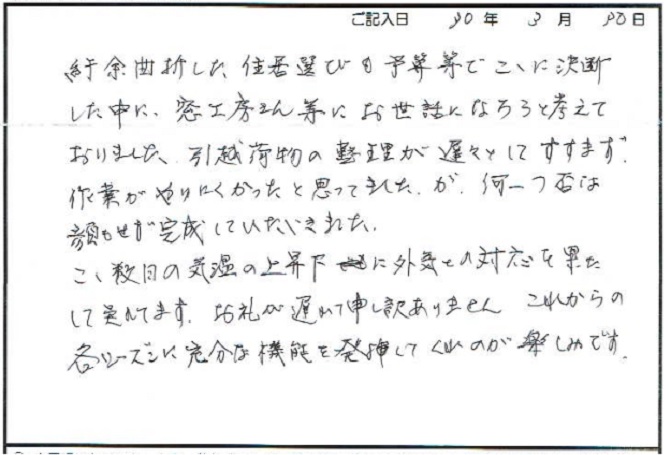 ご記入日 30年 3月 30日
紆余曲折した住居選びも予算等でここに決断
した中に、窓工房さん等にお世話になろうと考えて
おりました、引越荷物の整理が遅々としてすすまず、
作業がやりにくかったと思ってました、が、何一つ否な
顔もせず完成していただきました。
ここ数日の気温の上昇下に外気との対応を果た
して呉れてます。お礼が遅れて申し訳ありません これからの
各シーズンに充分な機能を発揮してくれのが楽しみです。